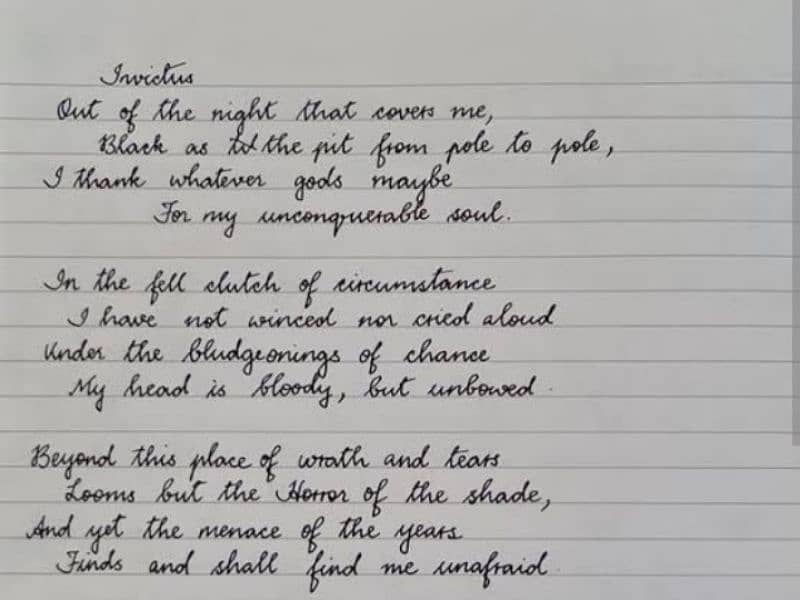 Invictus
Out of the night that covers me,
Black as the pit from pole to pole,
I thank whatever gods maybe
For my unconquerable soul.
In the fell clutch of circumstance
I have not winced nor cried aloud
Under the bludgeonings of chance
My head is bloody, but unbowed.
Beyond this place of wrath and tears
Looms but the Horror of the shade,
And yet the menace of the years
Finds and shall find me unafraid.